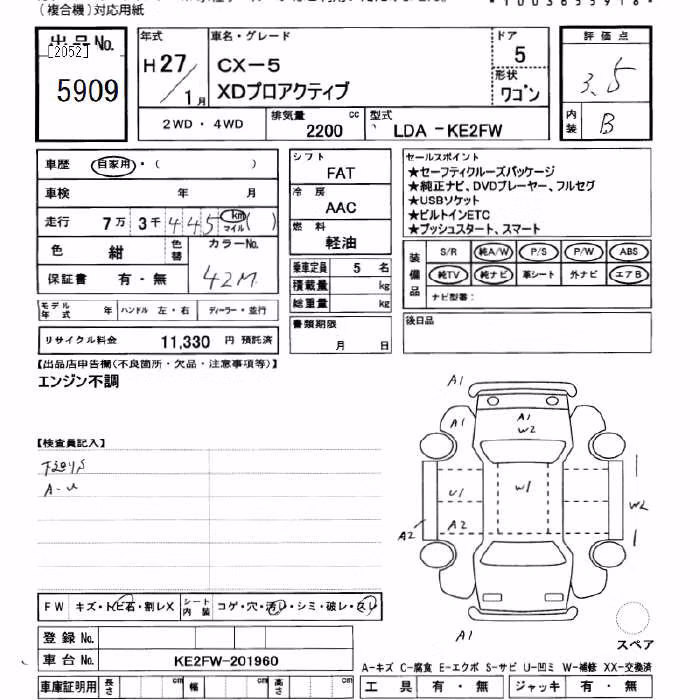 (複合機)対応用紙
出品No.
[2052]
5909
年式
H27/1月
車名・グレード
CX-5
XDプロアクティブ
ドア
5
形状
ワゴン
評価点
3.5
内装
B
2WD・4WD
排気量 2200 cc
型式 LDA -KE2FW
車歴 自家用・( )
車検 年 月
走行 7万3千445 km マイル ( )
色 紺 色替 カラーNo. 42M
保証書 有・無
モデル年式 年 ハンドル 左・右 ディーラー・並行
リサイクル料金 11,330 円 預託済
シフト
FAT
冷房
AAC
燃料
軽油
乗車定員 5 名
積載量 kg
総重量 kg
書類期限
月 日
セールスポイント
★セーフティクルーズパッケージ
★純正ナビ、DVDプレーヤー、フルセグ
★USBソケット
★ビルトインETC
★プッシュスタート、スマート
装備品
S/R 純A/W P/S P/W ABS
純TV 純ナビ 革シート 外ナビ エアB
ナビ型番:
後日品
【出品店申告欄(不良箇所・欠品・注意事項等)】
エンジン不調
【検査員記入】
A1
A1
A1
W2
U1
W1
A2
A2
W2
A1
スペア
FW キズ・トビ石・割レX シート内装 コゲ・穴・汚レ・シミ・破レ・スレ
登録No.
車台No. KE2FW-201960
A-キズ C-腐食 E-エクボ S-サビ U-凹ミ W-補修 XX-交換済
車庫証明用 長さ cm 幅 cm 高さ cm
工具 有・無 ジャッキ 有・無